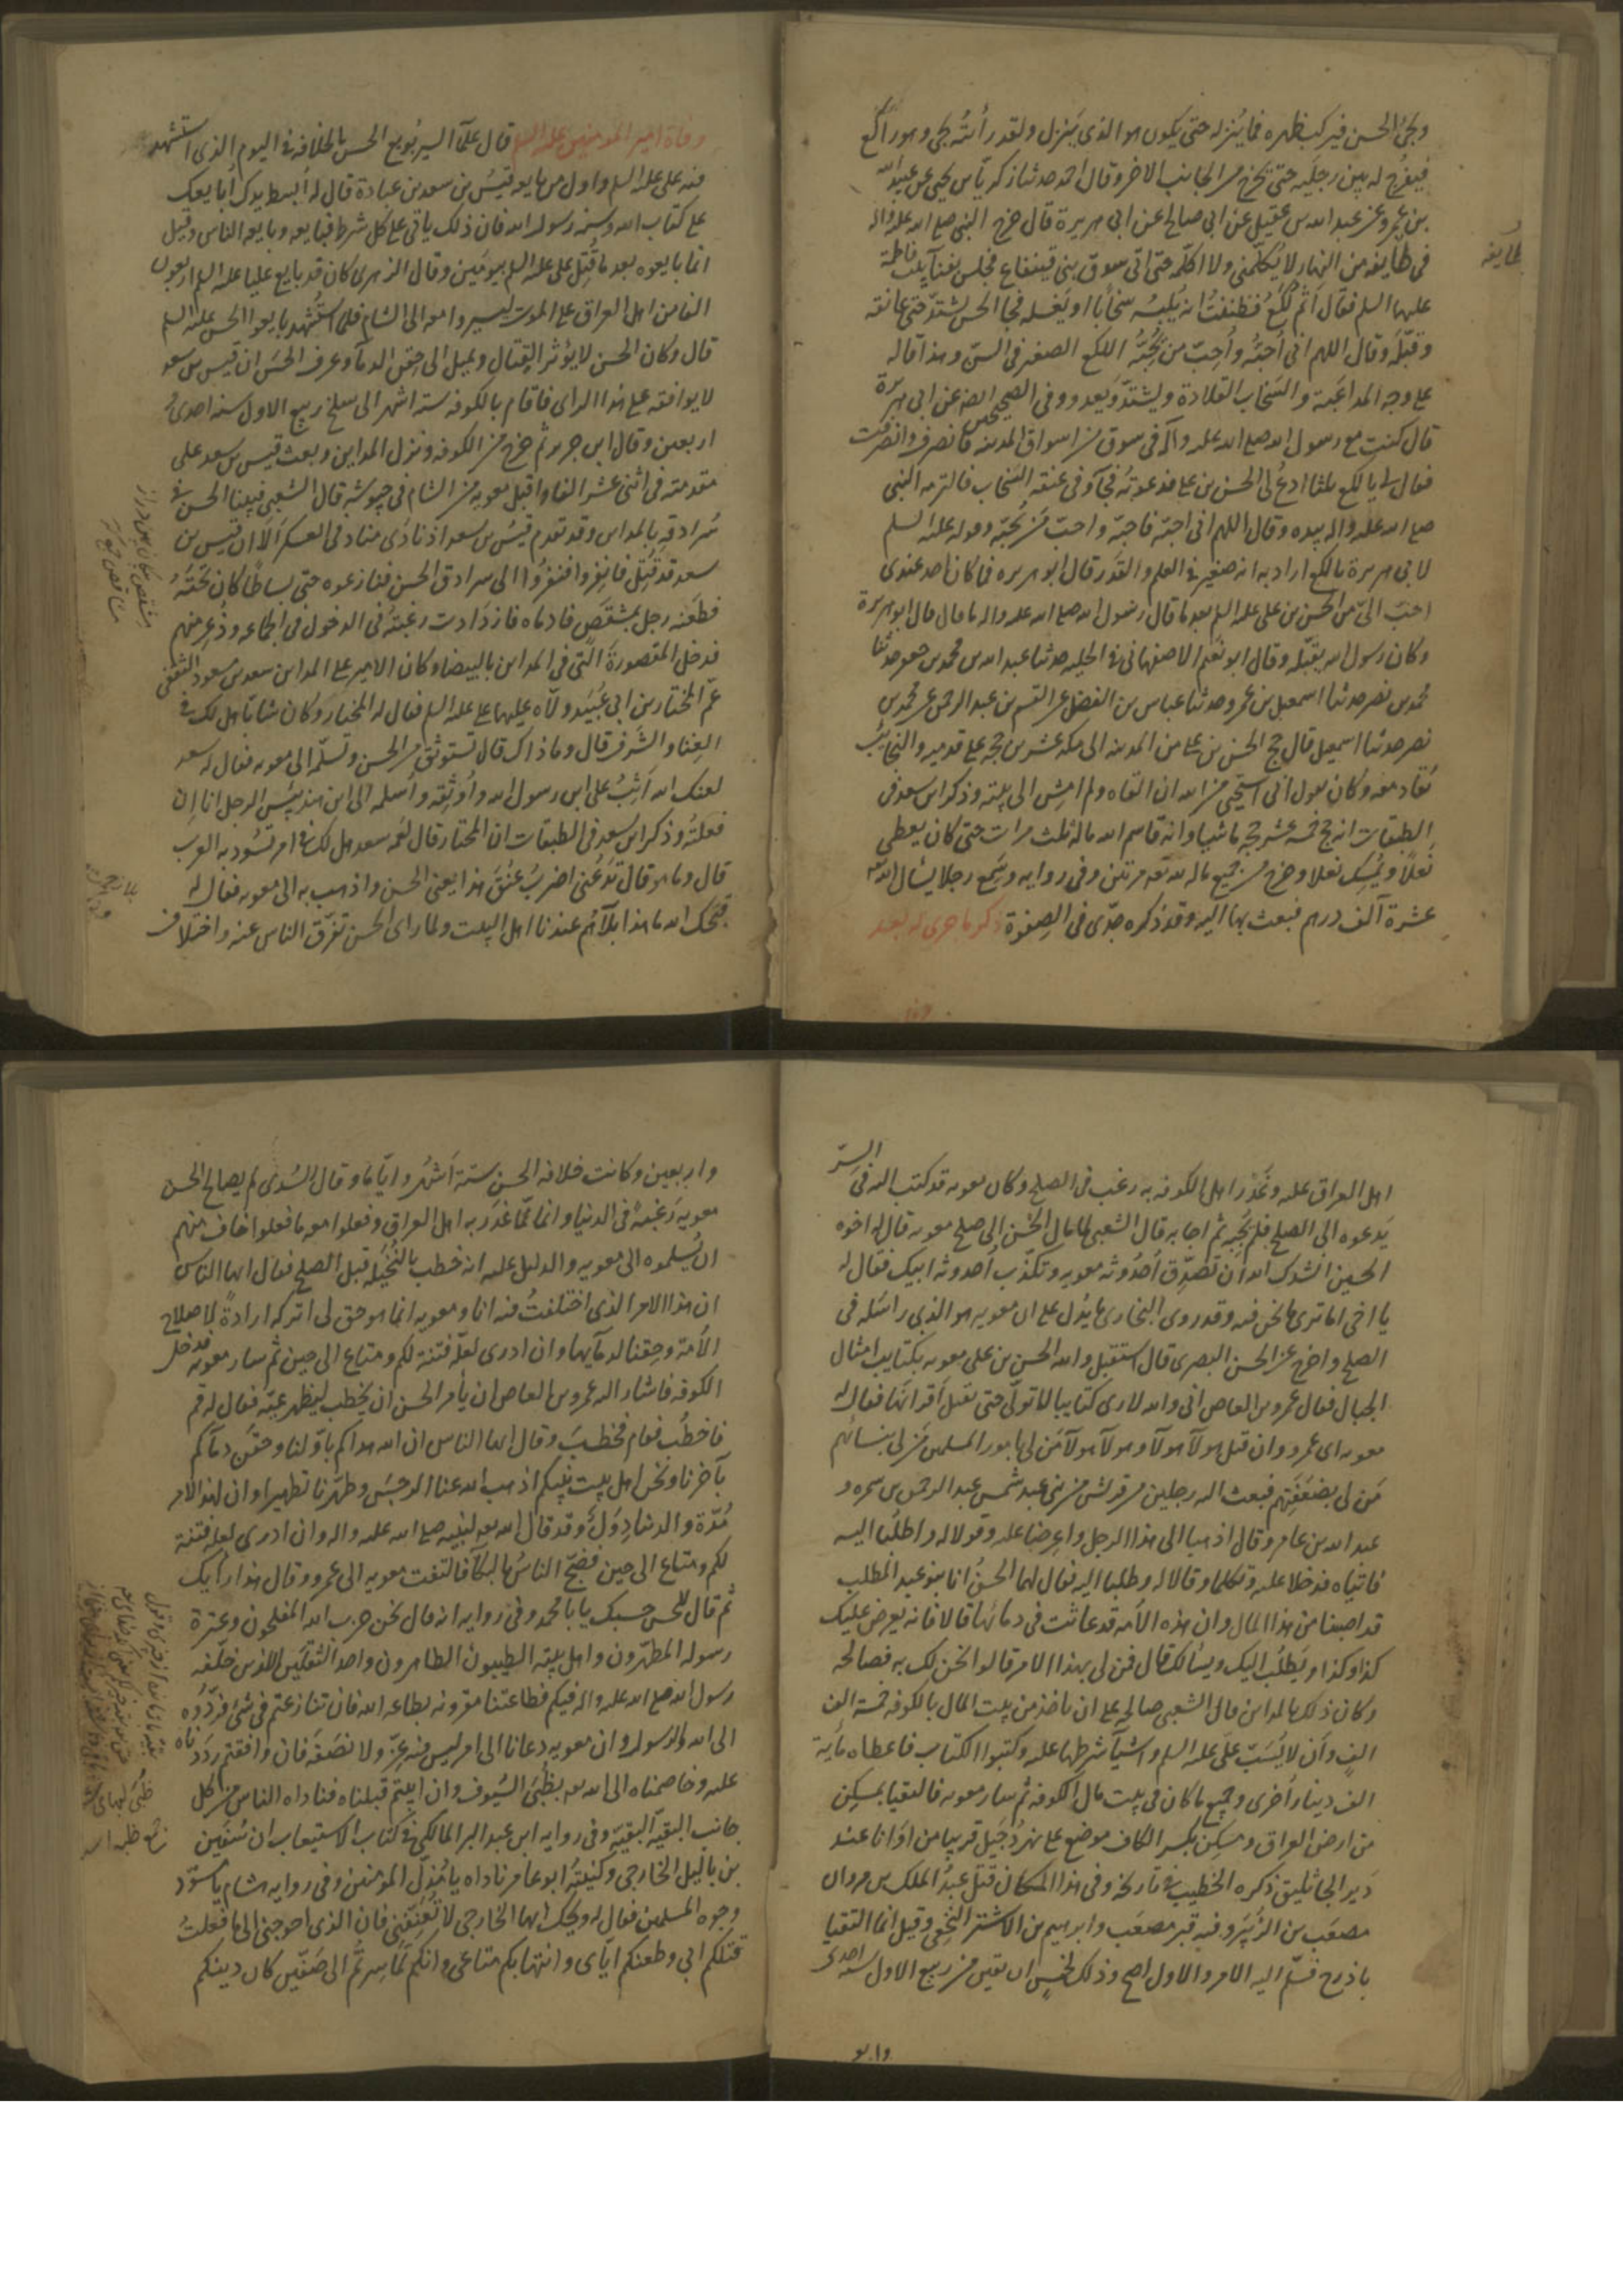 ويجئ الحسن فيركب ظهره فما ينزله حتى يكون هو الذى ينزل ولقد رأيته يجئ وهو راكع
فيفرج له بين رجليه حتى يخرج من الجانب الاخر وقال احمد حدثنا زكريا بن يحيى عن عبيد الله
بن عمرو عن عبد الله بن عقيل عن ابى صالح عن ابى هريرة قال خرج النبى صلى الله عليه واله
فى طايفه من النهار لا يكلمنى ولا اكلمه حتى اتى سوق بنى قينقاع فجلس بفناء بيت فاطمة
طايفه
عليها السلم فقال اثم لكع فظننت انه يلبسه سخابا او يغسله فجاء الحسن يشتد حتى عانقه
وقبله وقال اللهم انى احبه واحب من يحبه اللكع الصغير فى السن وهذا قاله
على وجه المداعبة والسخاب القلادة ويشتد ويعدو وفى الصحيحين ايضا عن ابى هريرة
قال كنت مع رسول الله صلى الله عليه وآله فى سوق من اسواق المدينه فانصرف وانصرفت
فقال لى يا لكع ثلثا ادع لى الحسن بن على فدعوته فجآء وفى عنقه السخاب فالتزمه النبى
صلى الله عليه واله بيده وقال اللهم انى احبه فاحبه واحب من يحبه وقوله عليه السلم
لابى هريرة يالكع اراد به انه صغير فى العلم والقدر قال ابو هريره فما كان احد عندى
احب الى من الحسن بن على عليه السلم بعد ما قال رسول الله صلى الله عليه واله ما قال قال ابو هريرة
وكان رسول الله يقبله وقال ابو نعيم الاصفهانى فى الحليه حدثنا عبد الله بن محمد بن جعفر حدثنا
محمد بن نصر حدثنا اسمعيل بن عمرو حدثنا عباس بن الفضل عن القسم بن عبد الرحمن عن محمد بن
نصر حدثنا اسمعيل قال حج الحسن بن على من المدينه الى مكه عشرين حجة على قدميه والنجايب
تقاد معه وكان يقول انى استحيى من الله ان القاه ولم امش الى بيته وذكر ابن سعد فى
الطبقات انه حج خمسة عشر حجه ماشيا وانه قاسم الله ماله ثلث مرات حتى كان يعطى
نعلا ويمسك نعلا وخرج من جميع ماله لله تعه مرتين وفى روايه وسمع رجلا يسأل الله تعه
عشرة آلف درهم فبعث بها اليه وقد ذكره جدى فى الصفوة ذكر ما جرى له بعد
وفاة امير المومنين عليه السلم قال علمآ السير بويع الحسن بالخلافه فى اليوم الذى استشهد
فيه على عليه السلم واول من بايعه قيس بن سعد بن عبادة قال له ابسط يدك ابايعك
على كتاب الله وسنة رسوله الله فان ذلك ياتى على كل شرط فبايعه وبايعه الناس وقيل
انما بايعوه بعد ما قتل على عليه السلم بيومين وقال الزهرى كان قد بايع عليا عليه السلم اربعون
الفا من اهل العراق على الموت ليسيروا معه الى الشام فلما استشهد بايعوا الحسن عليه السلم
قال وكان الحسن لا يؤثر القتال ويميل الى حقن الدمآ وعرف الحسن ان قيس بن سعد
لا يوافقه على هذا الراى فاقام بالكوفه ستة اشهر الى سلخ ربيع الاول سنه احدى و
اربعين وقال ابن جرير ثم خرج من الكوفه ونزل المداين وبعث قيس بن سعد على
مقدمته فى اثنى عشر الفا واقبل معويه من الشام فى جيوشه قال الشعبى فبينا الحسن فى
سرادقه بالمداين وقد تقدم قيس بن سعد اذ نادى مناد فى العسكر الا ان قيس بن
سعد قد قتل فانفروا فنفروا الى سرادق الحسن فنازعوه حتى بساطا كان تحته
فطعنه رجل بمشقص فادماه فازدادت رغبته فى الدخول فى الجماعه وذعر منهم
فدخل المقصورة التى فى المداين بالبيضا وكان الامير على المداين سعد بن مسعود الثقفى
عم المختار بن ابى عبيد ولاه عليها على عليه السلم فقال له المختار وكان شابا هل لك فى
الغنا والشرف قال وما ذاك قال تستوثق من الحسن وتسلمه الى معويه فقال له سعد
لعنك الله اثب على ابن رسول الله واوثقه واسلمه الى ابن هند بئس الرجل انا ان
فعلته وذكر ابن سعد فى الطبقات ان المختار قال لعمه سعد هل لك فى امر تسود به العرب
قال وما هو قال تدعنى اضرب عنق هذا يعنى الحسن واذهب به الى معويه فقال له
قبحك الله ما هذا بلآؤهم عندنا اهل البيت ولما راى الحسن تفرق الناس عنه واختلاف
اهل العراق عليه وغدر اهل الكوفه به رغب فى الصلح وكان معويه قد كتب اليه فى السر
يدعوه الى الصلح فلم يجبه ثم اجابه قال الشعبى لما مال الحسن الى صلح معويه قال له اخوه
الحسين انشدك الله ان تصدق احدوثه معويه وتكذب احدوثه ابيك فقال له
يا اخى اما ترى ما نحن فيه وقد روى البخارى ما يدل على ان معويه هو الذى راسله فى
الصلح واخرج عن الحسن البصرى قال استقبل والله الحسن بن على معويه بكتايب امثال
الجبال فقال عمرو بن العاص انى والله لارى كتايبا لا تولى حتى تقتل اقرانها فقال له
معويه اى عمرو وان قتل هولآ هولآ وهولآ هولآ من لى بامور المسلمين من لى بنسائهم
من لى بضعفتهم فبعث اليه رجلين من قريش من بنى عبد شمس عبد الرحمن بن سمره و
عبد الله بن عامر وقال اذهبا الى هذا الرجل واعرضا عليه وقولا له واطلبا اليه
فاتياه فدخلا عليه وتكلما وقالا له وطلبا اليه فقال لهما الحسن انا بنو عبد المطلب
قد اصبنا من هذا المال وان هذه الامه قد عاثت فى دمائها قالا فانه يعرض عليك
كذا وكذا ويطلب اليك ويسألك قال فمن لى بهذا الامر قالوا نحن لك به فصالحه
وكان ذلك بالمداين قال الشعبى صالحه على ان ياخذ من بيت المال بالكوفه خمسة الف
الف وان لا يسب على عليه السلم واشيآ شرطها عليه وكتبوا الكتاب فاعطاه مايه
الف دينار اخرى وجميع ما كان فى بيت مال الكوفه ثم سار معويه فالتقيا بمسكن
من ارض العراق ومسكن بكسر الكاف موضع على نهر دجيل قريبا من اوانا عند
دير الجاثليق ذكره الخطيب فى تاريخه وفى هذا المكان قتل عبد الملك بن مروان
مصعب بن الزبير وفيه قبر مصعب وابرهيم بن الاشتر النخعى وقيل انما التقيا
باذرح فسلم اليه الامر والاول اصح وذلك لخمس ان بقين من ربيع الاول سنه احدى
واربعين وكانت خلافه الحسن ستة اشهر واياما وقال السدى لم يصالح الحسن
معويه رغبة فى الدنيا وانما لما غدر به اهل العراق وفعلوا معه ما فعلوا خاف منهم
ان يسلموه الى معويه والدليل عليه انه خطب بالنخيله قبل الصلح فقال ايها الناس
ان هذا الامر الذى اختلفت فيه انا ومعويه انما هو حق لى اتركه ارادة لاصلاح
الامة وحقنا لدمآيها وان ادرى لعله فتنة لكم ومتاع الى حين ثم سار معويه فدخل
الكوفه فاشار اليه عمرو بن العاص ان يأمر الحسن ان يخطب ليظهر عيه فقال له قم
فاخطب فقام فخطب وقال ايها الناس ان الله هداكم باولنا وحقن دمآكم
بآخرنا ونحن اهل بيت نبيكم اذهب الله عنا الرجس وطهرنا تطهيرا وان لهذا الامر
مدة والدنيا دول وقد قال الله تعه لنبيه صلى الله عليه واله وان ادرى لعله فتنة
لكم ومتاع الى حين فضج الناس بالبكآ فالتفت معويه الى عمرو وقال هذا رأيك
ثم قال للحسن حسبك يا با محمد وفى روايه انه قال نحن حزب الله المفلحون وعترة
رسوله المطهرون واهل بيته الطيبون الطاهرون واحد الثقلين اللذين خلفه
رسول الله صلى الله عليه واله فيكم فطاعتنا مقرونه بطاعه الله فان تنازعتم فى شئ فردوه
الى الله والرسول وان معويه دعانا الى امر ليس فيه عز ولا نصفه فان وافقتم رددناه
عليه وخاصمناه الى الله تعه بظبى السيوف وان ابيتم قبلناه فناداه الناس من كل
جانب البقيه البقيه وفى روايه ابن عبد البر المالكى فى كتاب الاستيعاب ان سفين
بن ياليل الخارجى وكنيته ابو عامر ناداه يا مذل المومنين وفى روايه هشام يا مسود
وجوه المسلمين فقال له ويحك ايها الخارجى لا تعنفنى فان الذى احوجنى الى ما فعلت
قتلكم ابى وطعنكم اياى وانتهابكم متاعى وانكم لما سرتم الى صفين كان دينكم